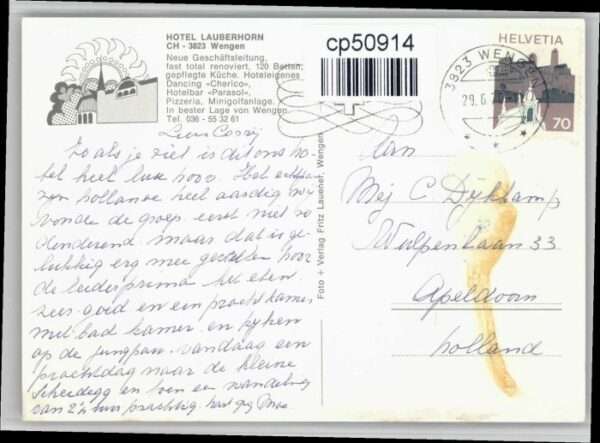 HOTEL LAUBERHORN
CH - 3823 Wengen
Neue Geschäftsleitung,
fast total renoviert, 120 Betten,
gepflegte Küche. Hoteleigenes
Dancing «Cherico»,
Hotelbar «Parasol»,
Pizzeria, Minigolfanlage.
In bester Lage von Wengen.
Tel. 036 - 55 32 61
cp50914
HELVETIA
70
3823 WENGEN
29.6
Foto + Verlag Fritz Lauener, Wengen
Zo als je ziet is dit ons ho
tel heel luxe hoor. Het echtpaar
zyn hollanse heel aardig wy
vonde de groep eerst niet zo
denderend. maar dat is ge
lukkig erg mee gevallen hoor
de leider prima. het eten
zeer goed en een pracht kamer
met bad kamer. en kyken
op de Jungfrau. vandaag een
prachtdag naar de kleine
Scheidegg en toen een wandeling
van 2½ uur prachtig.
Aan
Mej C Dykkamp
Wulpenlaan 33
Apeldoorn
Holland